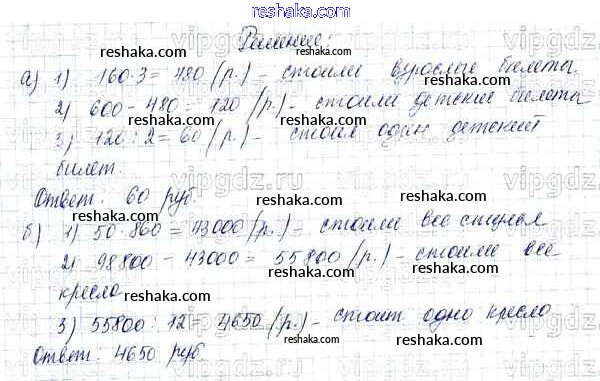 reshaka.com
Решение:
reshaka.com
а) 1) 160·3 = 480 (р.) – стоили взрослые билеты.
reshaka.com
2) 600 – 480 = 120 (р.) – стоили детские билеты
reshaka.com
3) 120 : 2 = 60 (р.) – стоил один детский
билет.
reshaka.com
Ответ: 60 руб.
reshaka.com
б) 1) 50·860 = 43000 (р.) – стоили все стулья
reshaka.com
2) 98800 – 43000 = 55800 (р.) – стоили все
кресла
reshaka.com
3) 55800 : 12 = 4650 (р.) – стоит одно кресло
reshaka.com
Ответ: 4650 руб.
reshaka.com